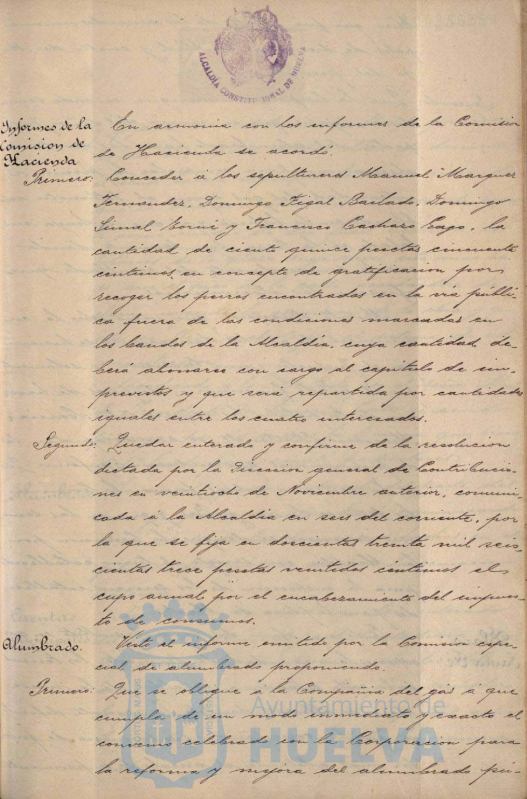 ALCALDIA CONSTITUCIONAL DE HUELVA
Informes de la
Comision de
Hacienda
En armonia con los informes de la Comision
de Hacienda se acordó.
Primero: Conceder á los sepultureros Manuel Marquez
Fernandez, Domingo Figal Bailado, Domingo
y Francisco Lago, la
cantidad de ciento quince pesetas cincuenta
centimos, en concepto de gratificacion por
recoger los perros encontrados en la via públi-
ca fuera de las condiciones marcadas en
los bandos de la Alcaldia, cuya cantidad de-
berá abonarse con cargo al capitulo de im-
previstos y que será repartida por cantidades
iguales entre los cuatro interesados.
Segundo: Quedar enterado y conforme de la resolucion
dictada por la Direccion general de Contribucio-
nes en veintiocho de Noviembre anterior, comuni-
cada á la Alcaldia en seis del corriente, por
la que se fija en doscientas treinta mil seis
cientas trece pesetas veintidos centimos el
cupo anual por el encabezamiento del impues-
to de consumos.
Alumbrado.
Visto el informe emitido por la Comision espe-
cial de alumbrado proponiendo.
Primero: Que se obligue á la Compañia del gas á que
cumpla de un modo inmediato y exacto el
convenio celebrado con la Corporacion para
la reforma y mejora del alumbrado pú-
Ayuntamiento de
HUELVA